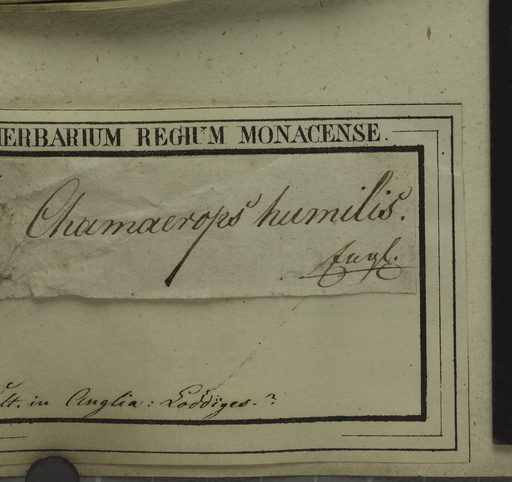 HERBARIUM REGIUM MONACENSE.
Chamaerops humilis.
Engl.
lt. in Anglia: Loddiges.